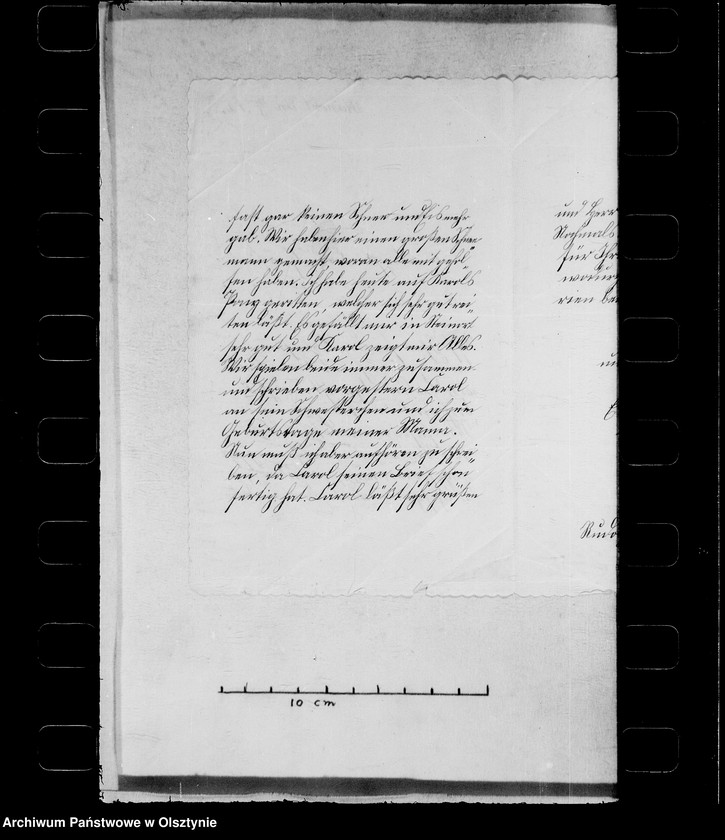 fast gar keinen Schnee und Eis mehr
gab. Wir haben hier einen großen Schnee
mann gemacht, woran alle mit gehol
fen haben. Ich habe heute auf Karols
Pony geritten, welcher sich sehr gut rei
ten läßt. Es gefällt mir in
sehr gut und Karol zeigt mir Alles.
Wir spielen beide immer zusammen
und schrieben vorgestern Carol
an sein Schwesterchen und ich zum
Geburtstage meiner Mama.
Nun muß ich aber aufhören zu schrei
ben, da Carol seinen Brief schon
fertig hat. Carol läßt sehr grüßen
und Herr
Nochmals
für Ihr
rien be
10 cm
Archiwum Państwowe w Olsztynie